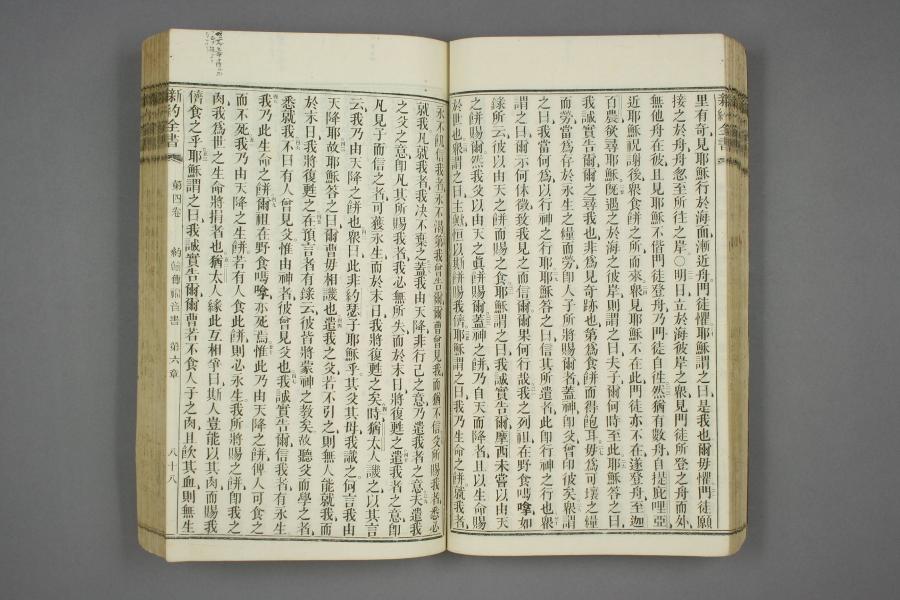 里有奇見耶穌行於海面漸近舟門徒懼耶穌謂之曰是我也爾毋懼門徒願
接之於舟舟忽至所往之岸○明日立於海彼岸之衆見門徒所登之舟而外
無他舟在彼且見耶穌不偕門徒登舟乃門徒自往然猶有數舟自提庇哩亞
近耶穌祝謝後衆食餅之所而來衆見耶穌不在此門徒亦不在遂登舟至迦
百農欲尋耶穌旣遇之於海之彼岸則謂之曰夫子爾何時至此耶穌答之曰
我誠實告爾爾之尋我也非爲見奇跡也第爲食餅而得飽耳毋爲可壞之糧
而勞當爲存於永生之糧而勞卽人子所將賜爾者蓋神卽父曾印彼矣衆謂
之曰我當何爲以行神之行耶耶穌答之曰信其所遣者此卽行神之行也衆
謂之曰爾示何休徵致我見之而信爾爾果何行哉我之列祖在野食嗎嗱如
錄所云彼以由天之餅而賜之食耶穌謂之曰我誠實告爾摩西未嘗以由天
之餅賜爾然我父以由天之眞餅賜爾蓋神之餅乃自天而降者且以生命賜
於世也衆謂之曰主歟恒以斯餅賜我儕耶穌謂之曰我乃生命之餅就我者
永不飢信我者永不渴第我曾告爾爾曹曾見我而猶不信父所賜我者悉必
就我凡就我者我決不棄之蓋我由天降非行己之意乃遣我者之意夫遣我
之父之意卽凡其所賜我者我必無所失而於末日將復甦之遣我者之意卽
凡見子而信之者可獲永生而於末日我將復甦之矣時猶太人譏之以其言
云我乃由天降之餅也衆曰此非約瑟子耶穌乎其父其母我識之何言我由
天降耶故耶穌答之曰爾曹毋相譏也遣我之父若不引之則無人能就我而
於末日我將復甦之在預言者有錄云彼皆將蒙神之教矣故聽父而學之者
悉就我不曰有人曾見父惟由神者彼曾見父也我誠實告爾信我者有永生
我乃此生命之餅爾祖在野食嗎嗱亦死焉惟此乃由天降之餅俾人可食之
而不死我乃由天降之生餅若有人食此餅則必永生我所將賜之餅卽我之
肉我爲世之生命將捐者也猶太人緣此互相爭曰斯人豈能以其肉而賜我
儕食之乎耶穌謂之曰我誠實告爾爾曹若不食人子之肉且飲其血則無生
新約全書 第四卷 約翰傳福音書 第六章 八十八